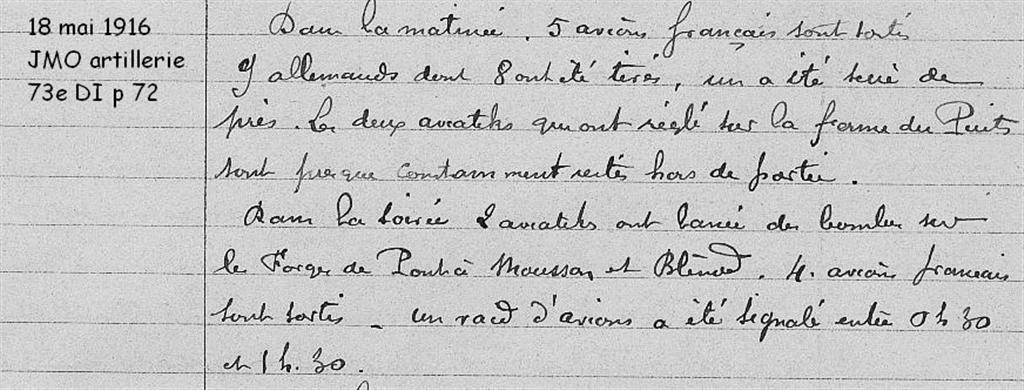 18 mai 1916
JMO artillerie
73e DI p 72
Dans la matinée. 5 avions français sont sortis
9 allemands dont 8 ont été tirés, un a été serré de
près. Les deux aviatiks qui ont réglé sur la ferme du Puits
sont presque constamment restés hors de portée.
Dans la soirée 2 aviatiks ont lancé des bombes sur
les Forges de Pont à Mousson et Blénod. 4. avions francais
sont sortis _ un raid d'avions a été signalé entre 0 h 30
et 1 h. 30.